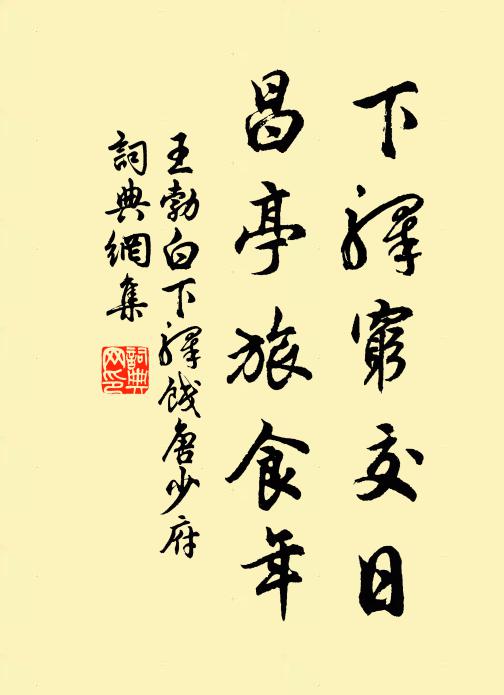 下驛窮交日
昌亭旅食年
王勃白下驛餞唐少府
詞典網集
詞典网印